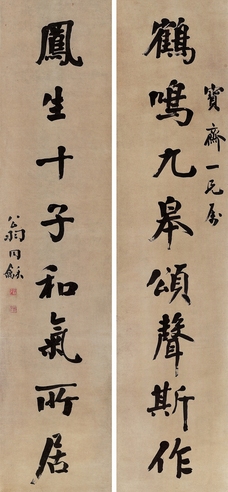 寶齋一兄屬
鶴鳴九皋頌聲斯作
鳳生十子和氣所居
翁同龢